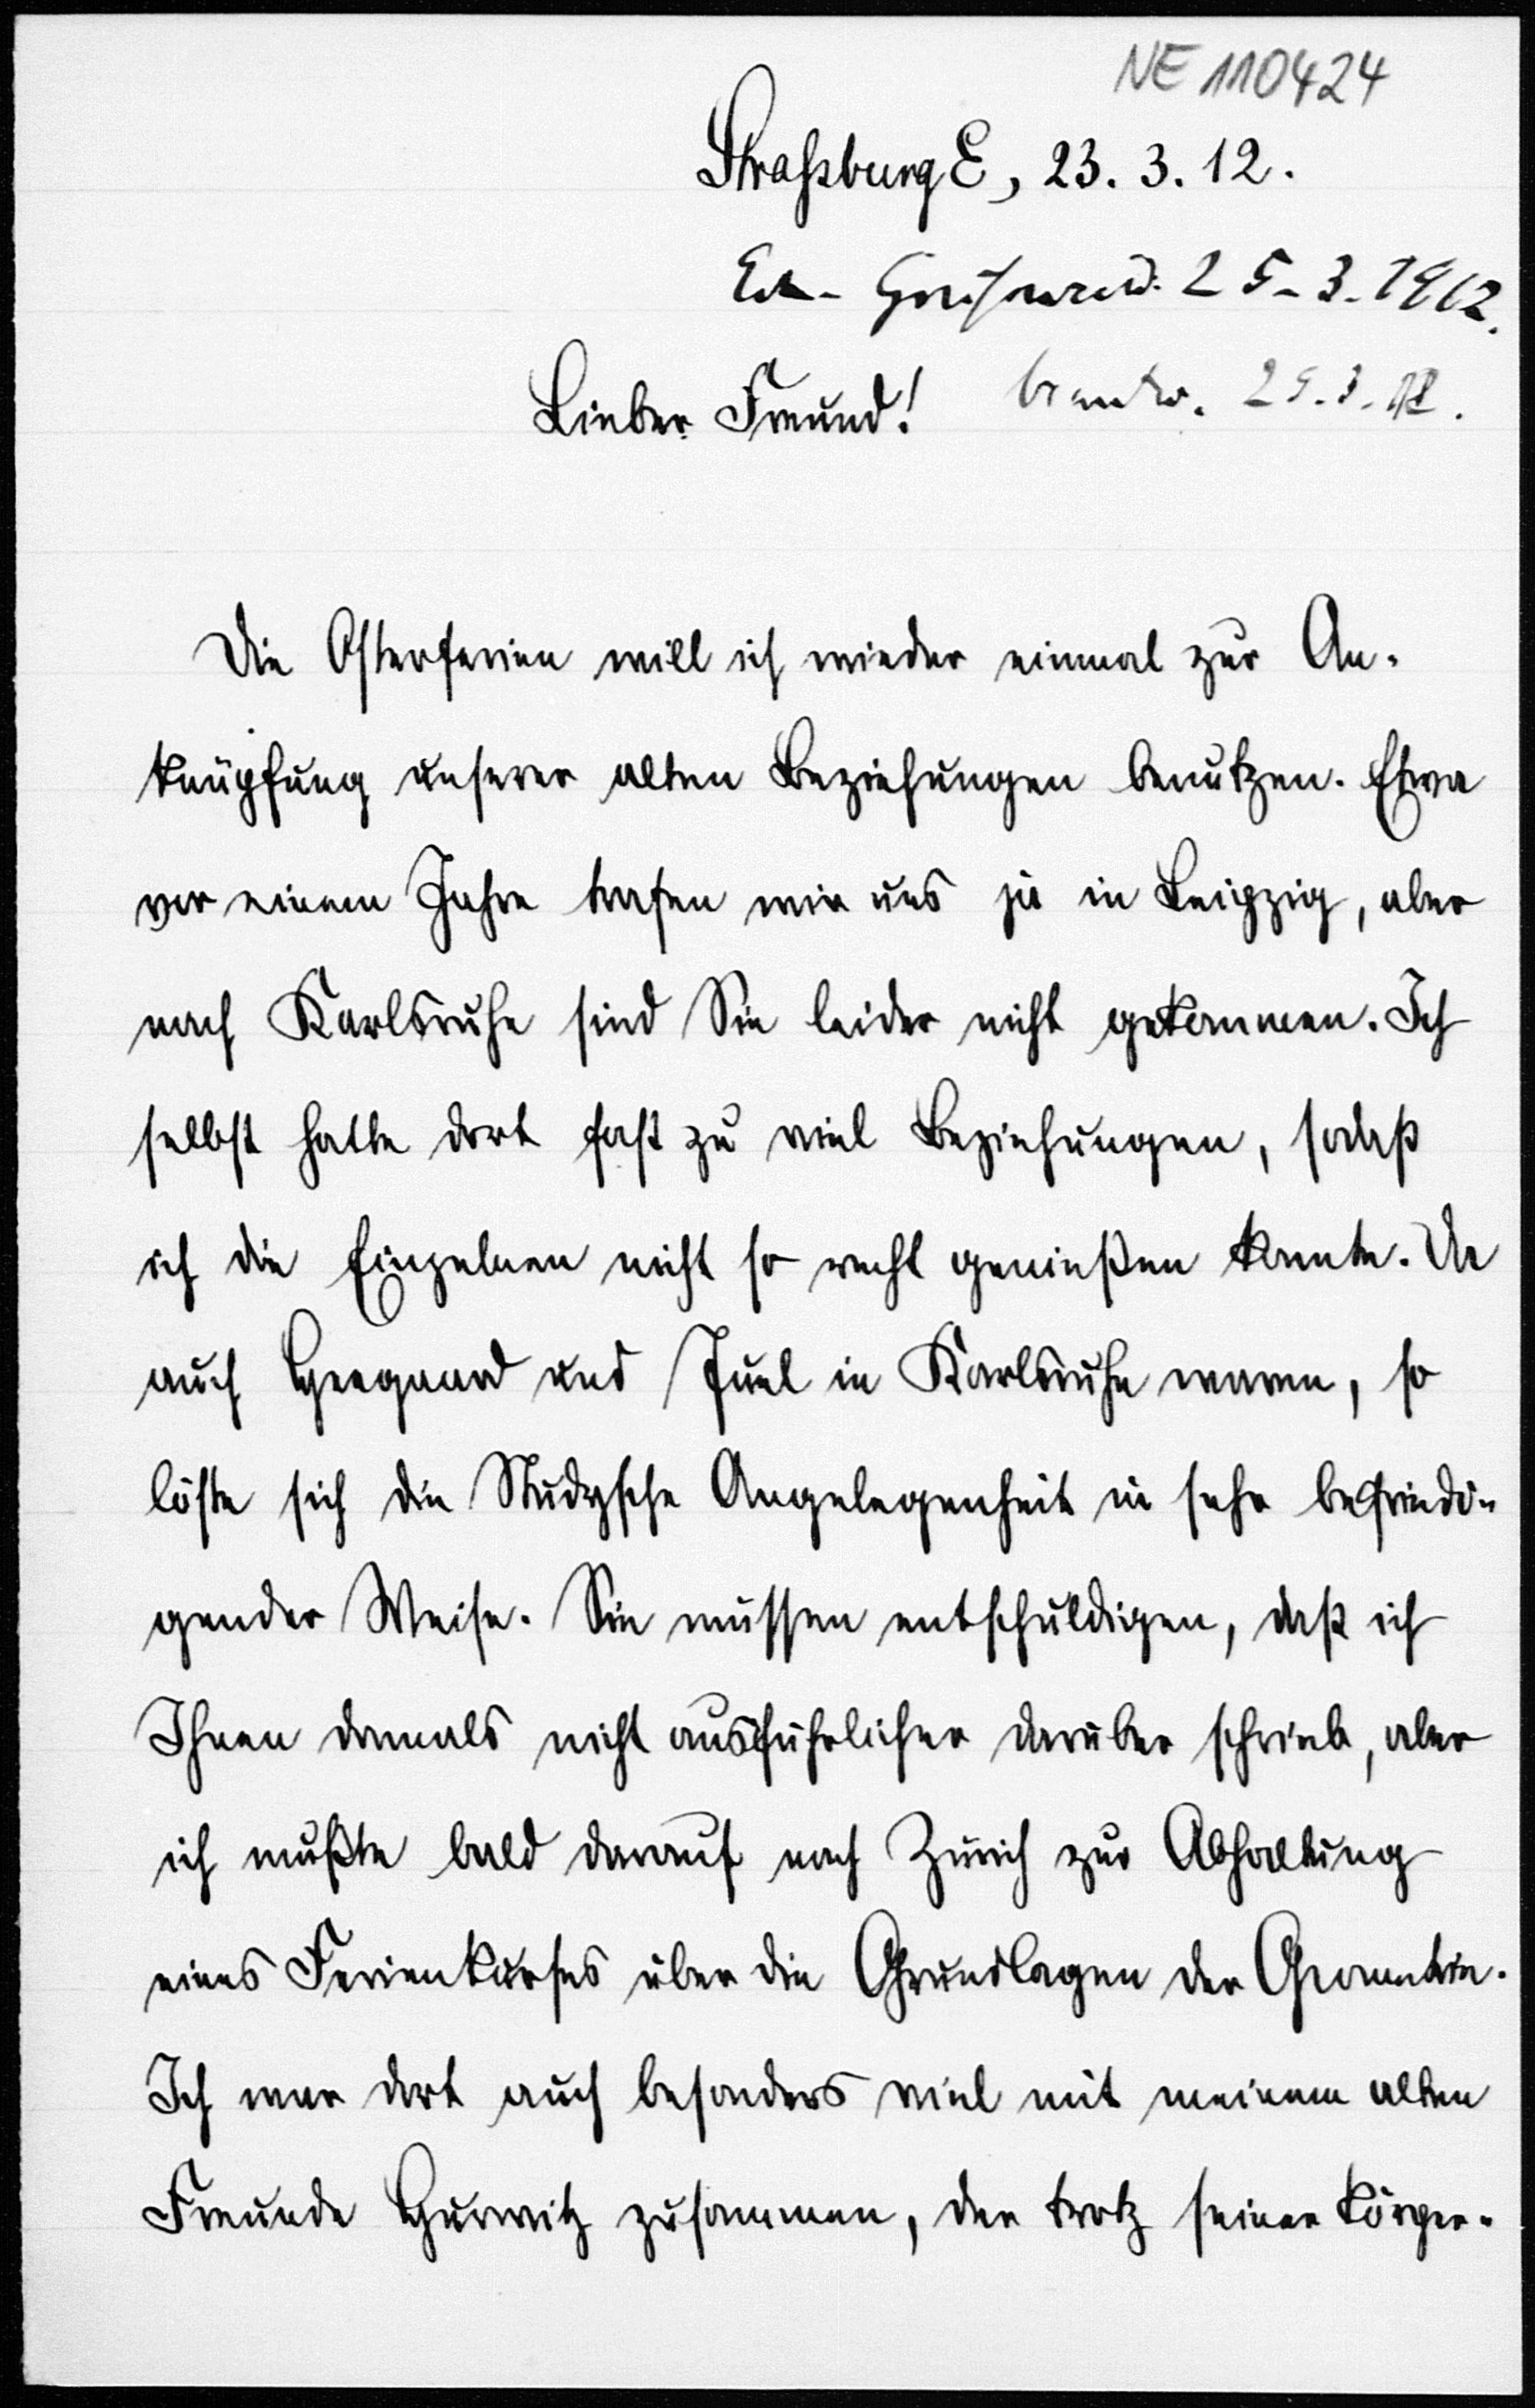 NE 110424
Straßburg E, 23. 3. 12.
Erh. Greifswald. 25-3-1912.
Lieber Freund! beantw. 29.3.12.
Die Osterferien will ich wieder einmal zur An-
knüpfung unserer alten Beziehungen benutzen. Etwa
vor einem Jahre trafen wir uns ja in Leipzig, aber
nach Karlsruhe sind Sie leider nicht gekommen. Ich
selbst hatte dort fast zu viel Beziehungen, sodaß
ich die Einzelnen nicht so recht genießen konnte. Da
auch Heegaard und Juel in Karlsruhe waren, so
löste sich die Studysche Angelegenheit in sehr befriedi-
gender Weise. Sie müssen entschuldigen, daß ich
Ihnen damals nicht ausführlicher darüber schrieb, aber
ich mußte bald darauf nach Zürich zur Abhaltung
eines Ferienkurses über die Grundlagen der Geometrie.
Ich war dort auch besonders viel mit meinem alten
Freunde Hurwitz zusammen, der trotz seiner körper-